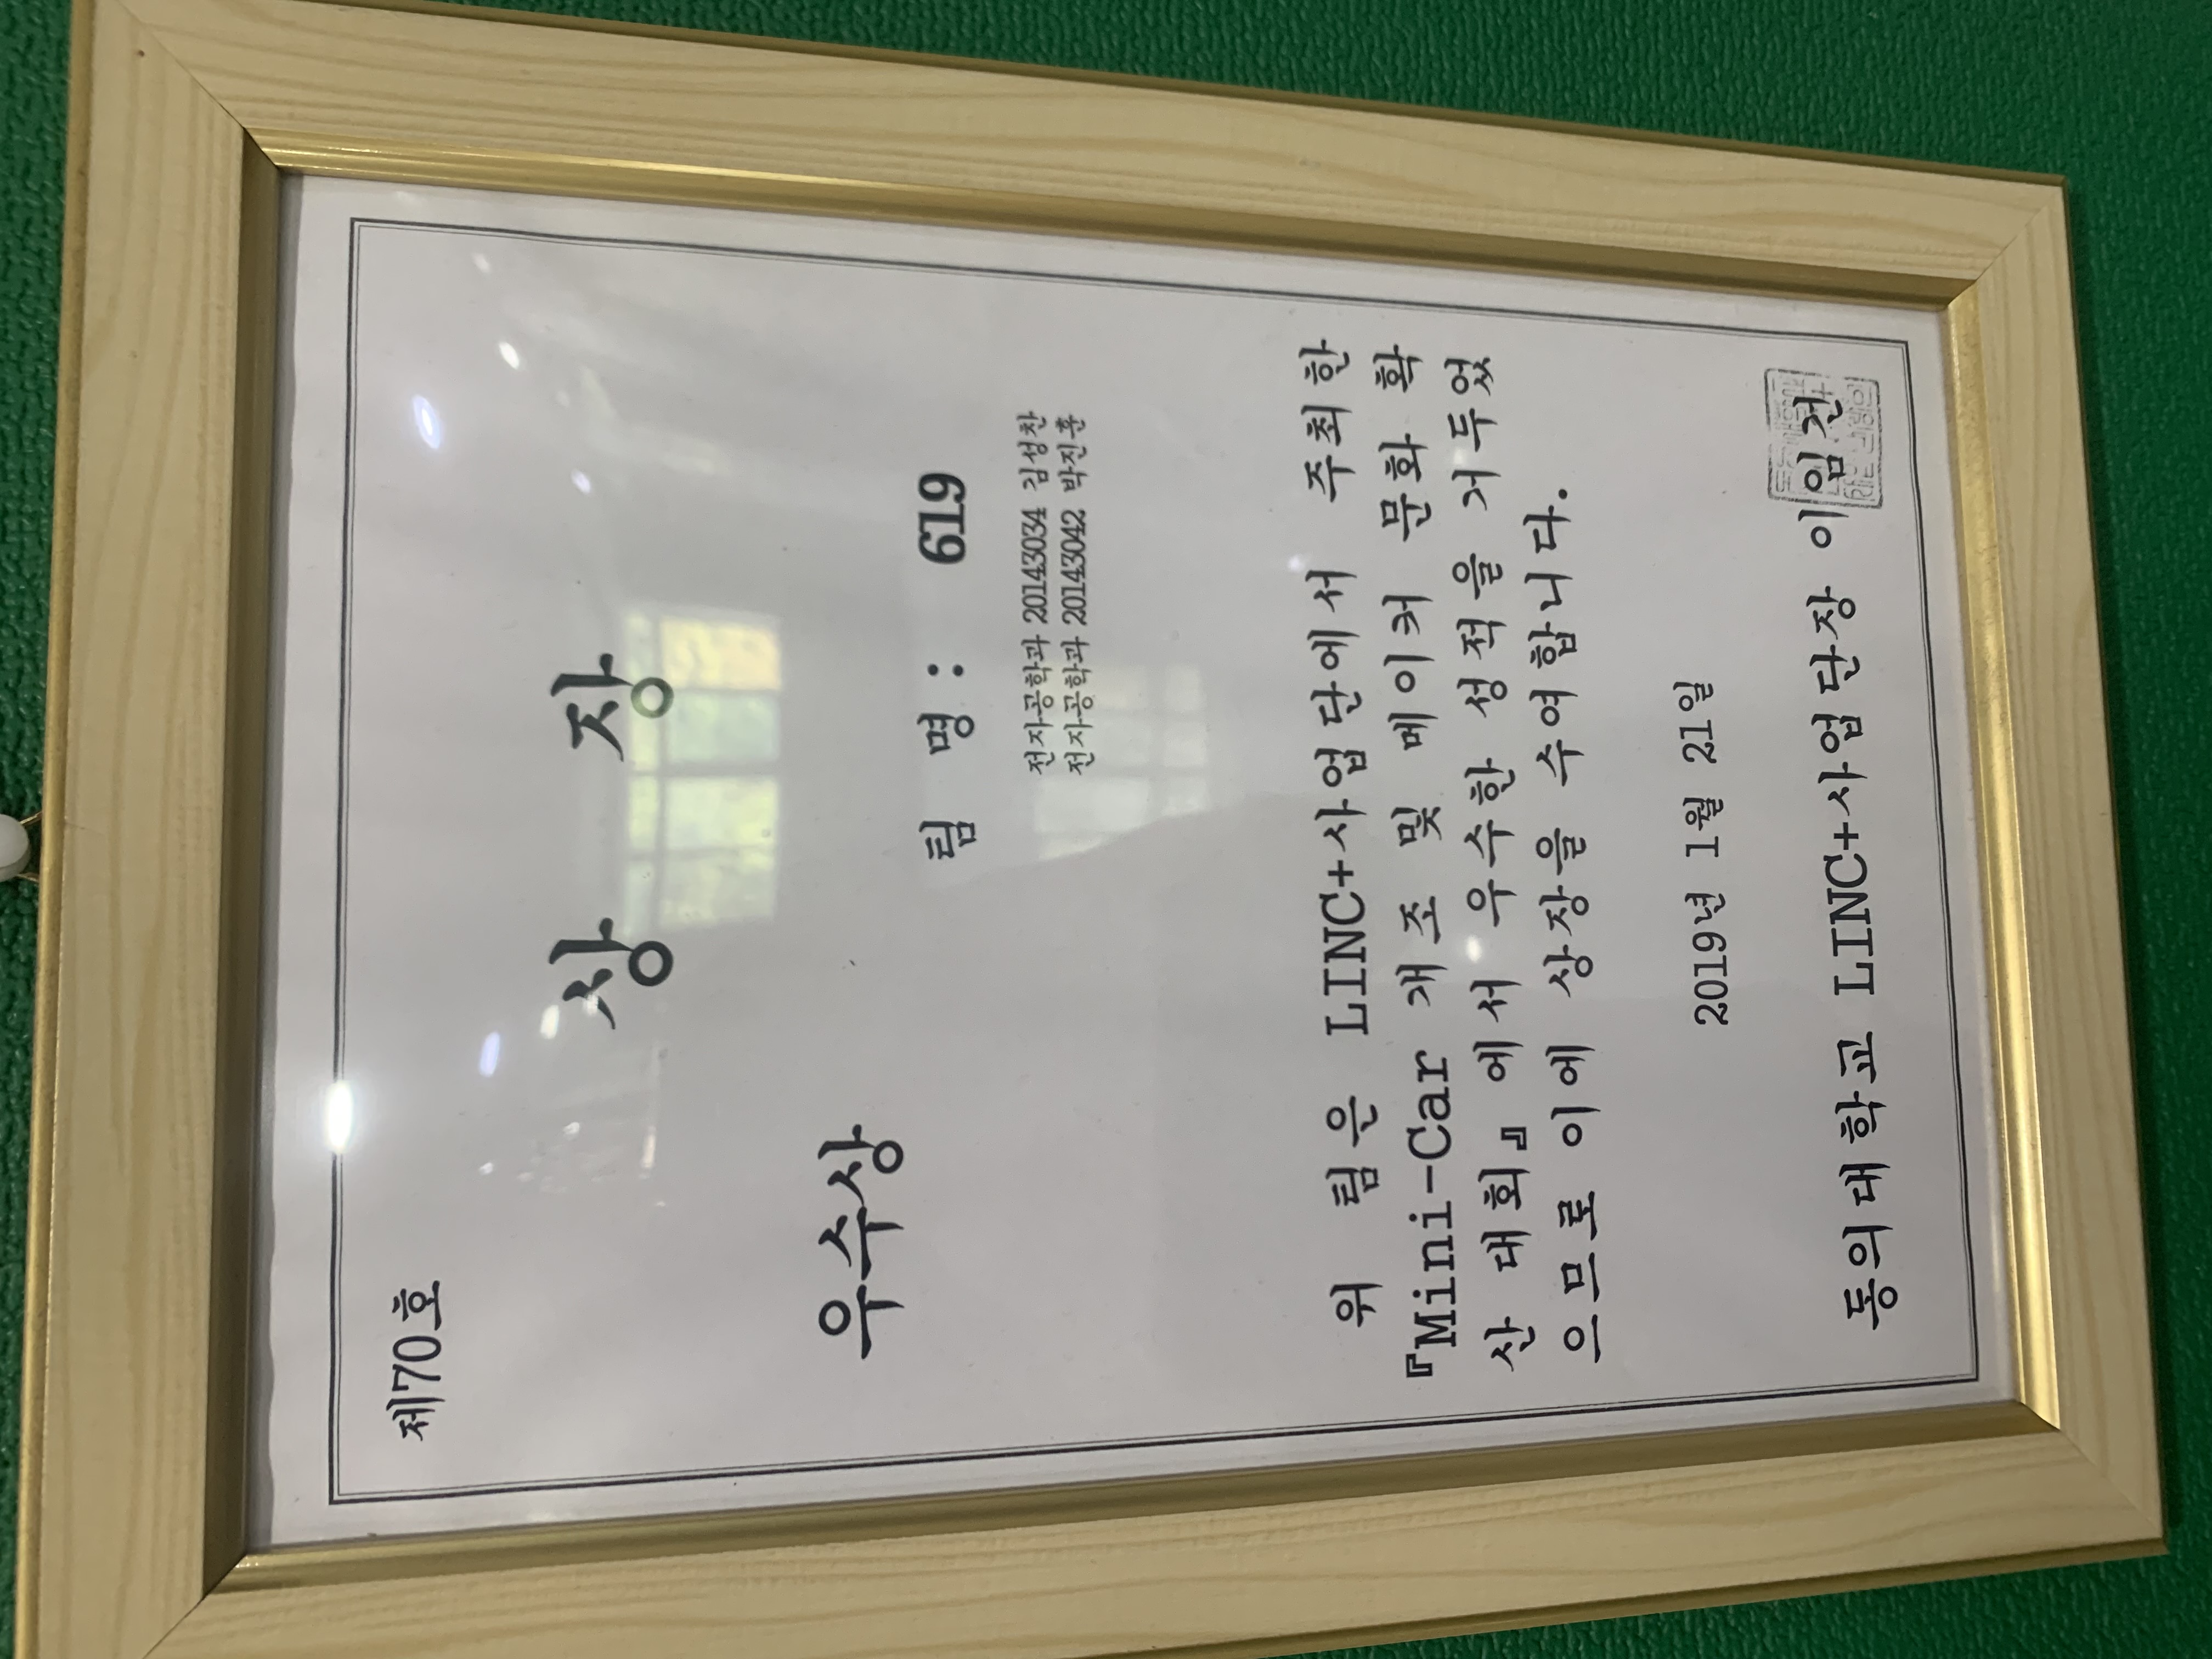 제70호
상 장
우수상
팀 명 : 619
전자공학과 20143034 김성찬
전자공학과 20143042 박진훈
위 팀은 LINC+사업단에서 주최한
『Mini-Car 개조 및 메이커 문화 확
산 대회』에서 우수한 성적을 거두었
으므로 이에 상장을 수여합니다.
2019년 1월 21일
동의대학교 LINC+사업단장 이임건